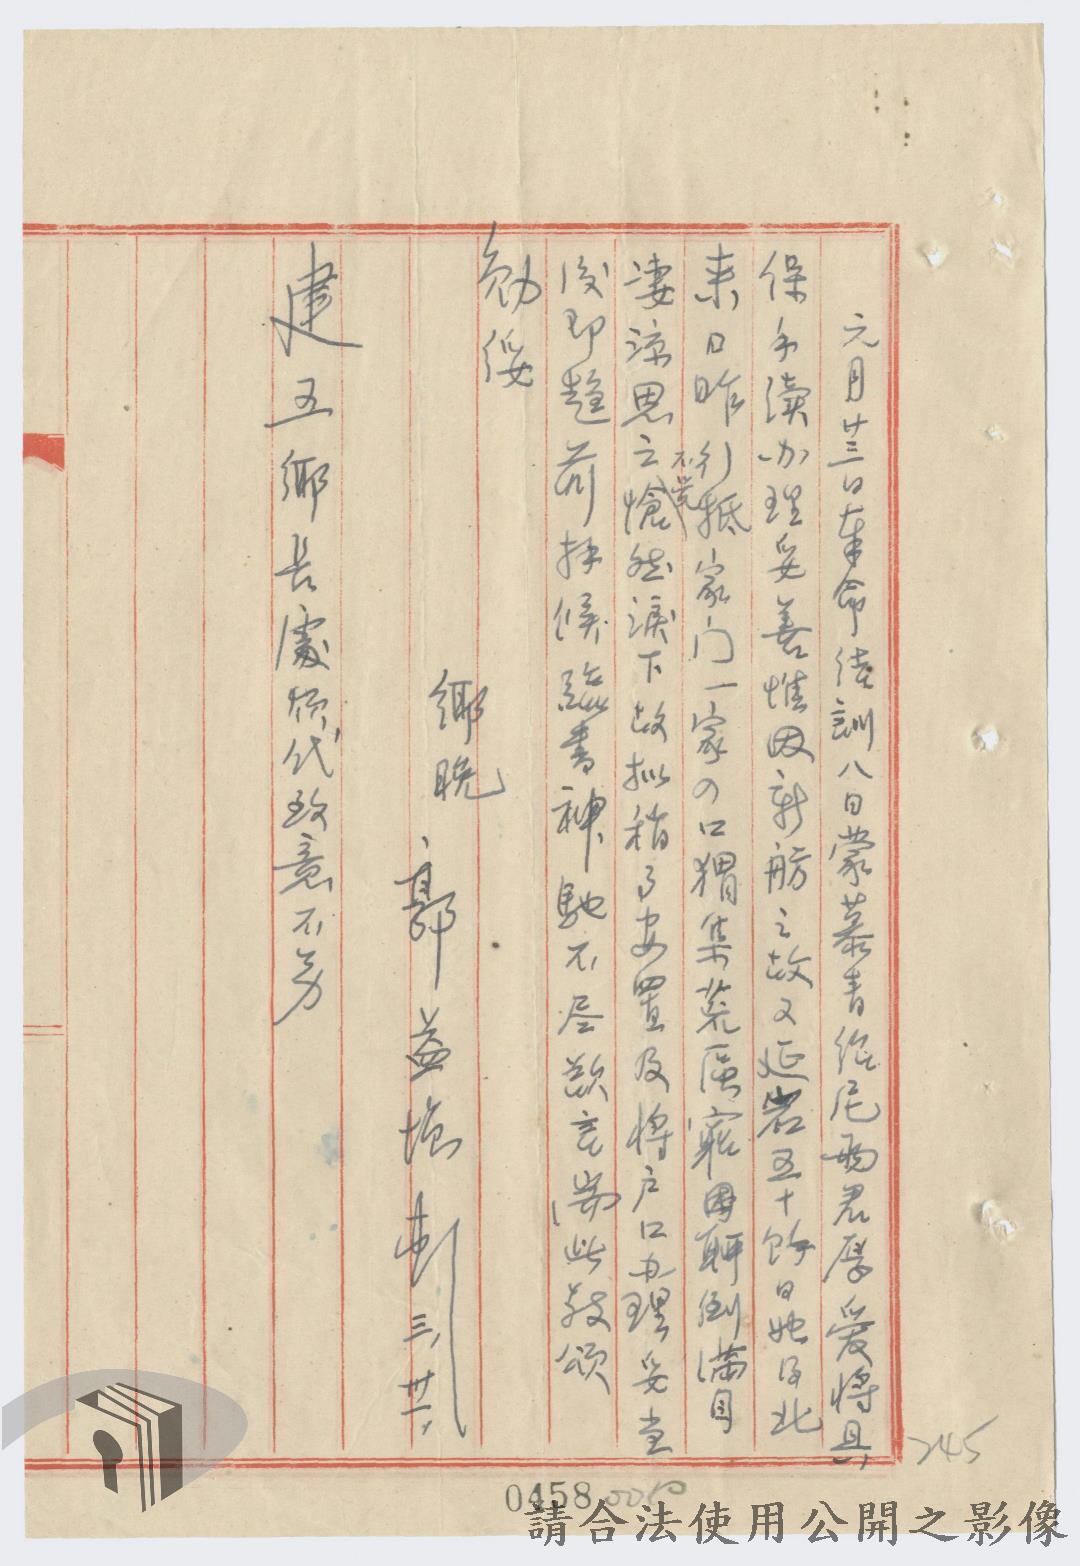 元月廿三日奉命結訓八日蒙慕青繼尼兩君厚爱將具
保手續办理妥善惟因新舫之故又延宕五十餘日始得北
来日昨行抵家门一家八口猬集荒區窮困聊倒滿目
不禁
淒涼思之愴然淚下故拟稍事安置及將户口办理妥当
後即趨前拜候臨書神馳不尽欲言端此敬頌
勋绥
鄉晚
郭益增 三、廿一、
建五鄉長處煩代致意不另
245
0458
請合法使用公開之影像